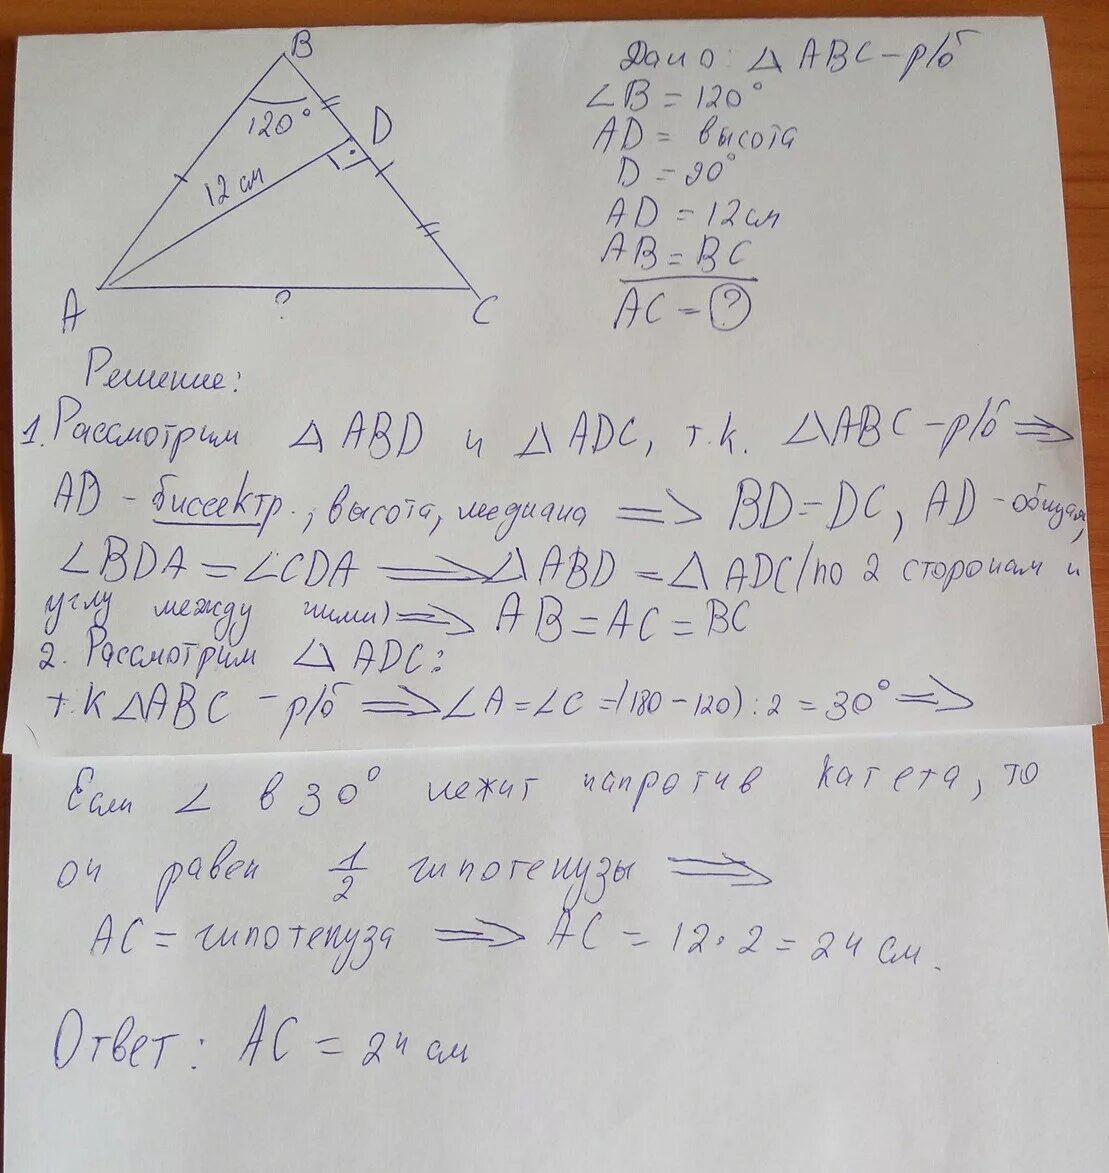 B
120°
D
12 см
A
?
C
Дано: △ ABC - р/б
∠B = 120°
AD = высота
D = 90°
AD = 12 см
AB = BC
AC = ?
Решение:
1. Рассмотрим △ ABD и △ ADC, т.к. △ABC - р/б ⇒
AD - биссектр., высота, медиана ⇒ BD = DC, AD - общая,
∠BDA = ∠CDA ⇒ △ ABD = △ ADC (по 2 сторонам и
углу между ними) ⇒ AB = AC = BC
2. Рассмотрим △ ADC:
т.к △ABC - р/б ⇒ ∠A = ∠C = (180 - 120) : 2 = 30° ⇒
Если ∠ в 30° лежит напротив катета, то
он равен 1/2 гипотенузы ⇒
AC = гипотенуза ⇒ AC = 12 · 2 = 24 см.
Ответ: AC = 24 см